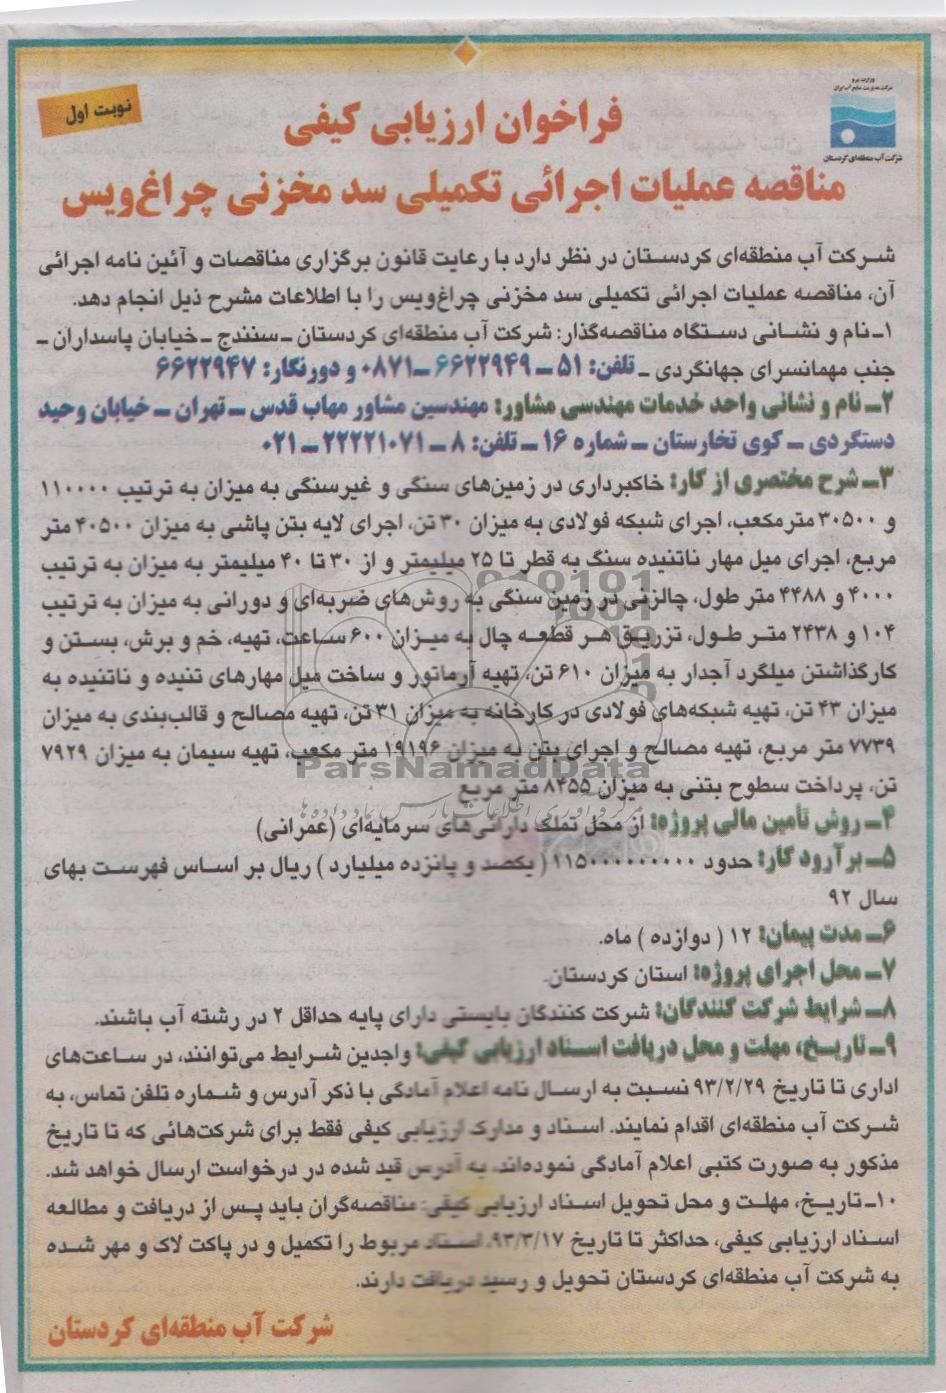 وزارت نیرو
شرکت مدیریت منابع آب ایران
شرکت آب منطقه‌ای کردستان
نوبت اول
فراخوان ارزیابی کیفی
مناقصه عملیات اجرائی تکمیلی سد مخزنی چراغ‌ویس
شرکت آب منطقه‌ای کردستان در نظر دارد با رعایت قانون برگزاری مناقصات و آئین نامه اجرائی
آن، مناقصه عملیات اجرائی تکمیلی سد مخزنی چراغ‌ویس را با اطلاعات مشرح ذیل انجام دهد.
۱ـ نام و نشانی دستگاه مناقصه‌گذار: شرکت آب منطقه‌ای کردستان ـ سنندج ـ خیابان پاسداران ـ
جنب مهمانسرای جهانگردی ـ تلفن: ۵۱ ـ ۶۶۲۲۹۴۹ ـ ۰۸۷۱ و دورنگار: ۶۶۲۲۹۴۷
۲ـ نام و نشانی واحد خدمات مهندسی مشاور: مهندسین مشاور مهاب قدس ـ تهران ـ خیابان وحید
دستگردی ـ کوی تخارستان ـ شماره ۱۶ ـ تلفن: ۸ ـ ۲۲۲۲۱۰۷۱ ـ ۰۲۱
۳ـ شرح مختصری از کار: خاکبرداری در زمین‌های سنگی و غیرسنگی به میزان به ترتیب ۱۱۰۰۰۰
و ۳۰۵۰۰ مترمکعب، اجرای شبکه فولادی به میزان ۳۰ تن، اجرای لایه بتن پاشی به میزان ۴۰۵۰۰ متر
مربع، اجرای میل مهار ناتنیده سنگ به قطر تا ۲۵ میلیمتر و از ۳۰ تا ۴۰ میلیمتر به میزان به ترتیب
۴۰۰۰ و ۴۴۸۸ متر طول، چالزنی در زمین سنگی به روش‌های ضربه‌ای و دورانی به میزان به ترتیب
۱۰۴ و ۲۴۳۸ متر طول، تزریق هر قطعه چال به میزان ۶۰۰ ساعت، تهیه، خم و برش، بستن و
کارگذاشتن میلگرد آجدار به میزان ۶۱۰ تن، تهیه آرماتور و ساخت میل مهارهای تنیده و ناتنیده به
میزان ۴۳ تن، تهیه شبکه‌های فولادی در کارخانه به میزان ۳۱ تن، تهیه مصالح و قالب‌بندی به میزان
۷۷۳۹ متر مربع، تهیه مصالح و اجرای بتن به میزان ۱۹۱۹۶ متر مکعب، تهیه سیمان به میزان ۷۹۲۹
تن، پرداخت سطوح بتنی به میزان ۸۴۵۵ متر مربع
ParsNamadData
۴ـ روش تأمین مالی پروژه: از محل تملک دارائی‌های سرمایه‌ای (عمرانی)
۵ـ برآورد کار: حدود ۱۱۵۰۰۰۰۰۰۰۰۰ ( یکصد و پانزده میلیارد ) ریال بر اساس فهرست بهای
سال ۹۲
۶ـ مدت پیمان: ۱۲ ( دوازده ) ماه.
۷ـ محل اجرای پروژه: استان کردستان.
۸ـ شرایط شرکت کنندگان: شرکت کنندگان بایستی دارای پایه حداقل ۲ در رشته آب باشند.
۹ـ تاریخ، مهلت و محل دریافت اسناد ارزیابی کیفی: واجدین شرایط می‌توانند، در ساعت‌های
اداری تا تاریخ ۹۳/۲/۲۹ نسبت به ارسال نامه اعلام آمادگی با ذکر آدرس و شماره تلفن تماس، به
شرکت آب منطقه‌ای اقدام نمایند. اسناد و مدارک ارزیابی کیفی فقط برای شرکت‌هائی که تا تاریخ
مذکور به صورت کتبی اعلام آمادگی نموده‌اند، به آدرس قید شده در درخواست ارسال خواهد شد.
۱۰ـ تاریخ، مهلت و محل تحویل اسناد ارزیابی کیفی: مناقصه‌گران باید پس از دریافت و مطالعه
اسناد ارزیابی کیفی، حداکثر تا تاریخ ۹۳/۳/۱۷، اسناد مربوط را تکمیل و در پاکت لاک و مهر شده
به شرکت آب منطقه‌ای کردستان تحویل و رسید دریافت دارند.
شرکت آب منطقه‌ای کردستان